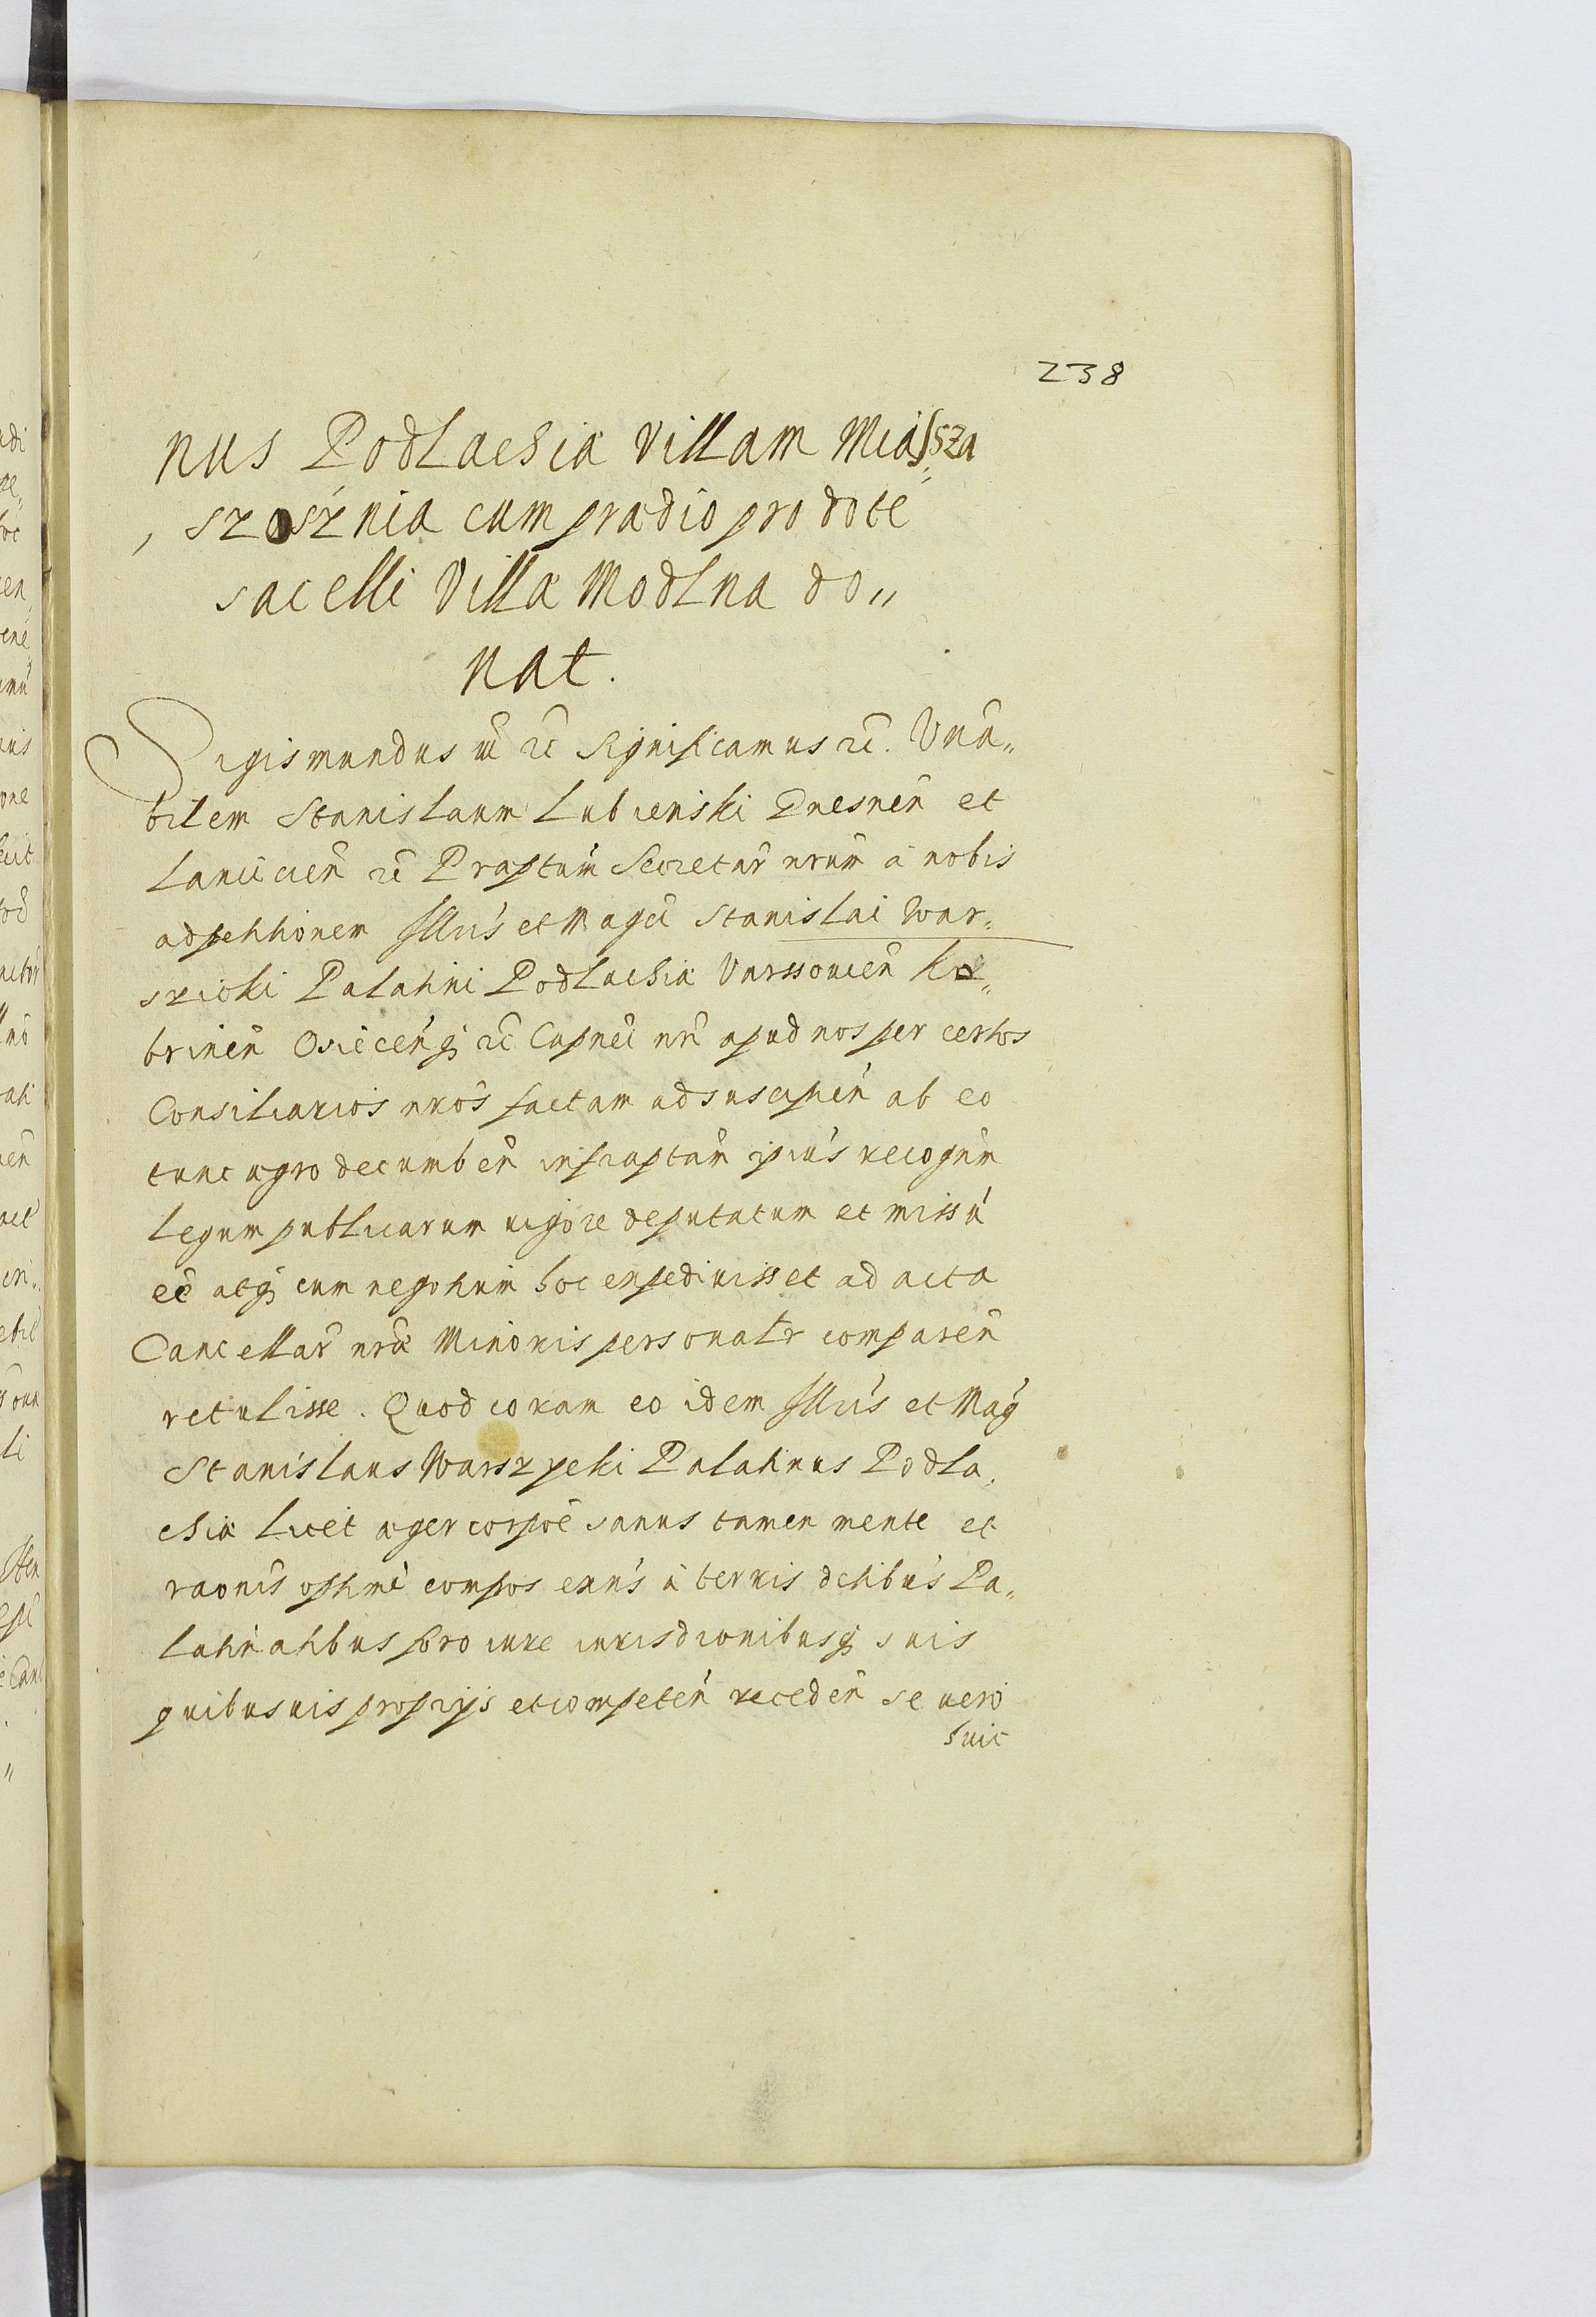 238
nus Podlachiæ Villam Miassza
szosznia cum prædio pro dote
sacelli Villæ Modlna do„
nat.
Sigismundus III rc̃ Significamus rc̃. Vnã„
bilem Stanislaum Lubienski Gnesneñ et
Lanicieñ rc̃ Præptum Secretar̃ nrum à nobis
ad petitionem Illris et Magci Stanislai War„
szicki Palatini Podlachiæ Varssouieñ Ko„
brineñ Osieceñq; rc̃ Capnei nri apud nos per certos
Consiliarios nros factam ad suscipieñ ab eo
tunc ægro decumbeñ infrascptam ipius recognem
Legum publicarum uigore deputatum et missũ
eẽ atq; cum negotium hoc expediuisset ad acta
Cancellar̃ nræ Minoris personatr compareñ
retulisse. Quod coram eo idem Illris et Mag
Stanislaus Warszycki Palatinus Podla„
chiæ Licet æger corpore sanus tamen mente et
raonis optime compos exñs à terris dctibus Pa„
latinatibus foro iure iurisdionibusq; suis
quibusuis proprijs et competeñ recedeñ se uero
huic